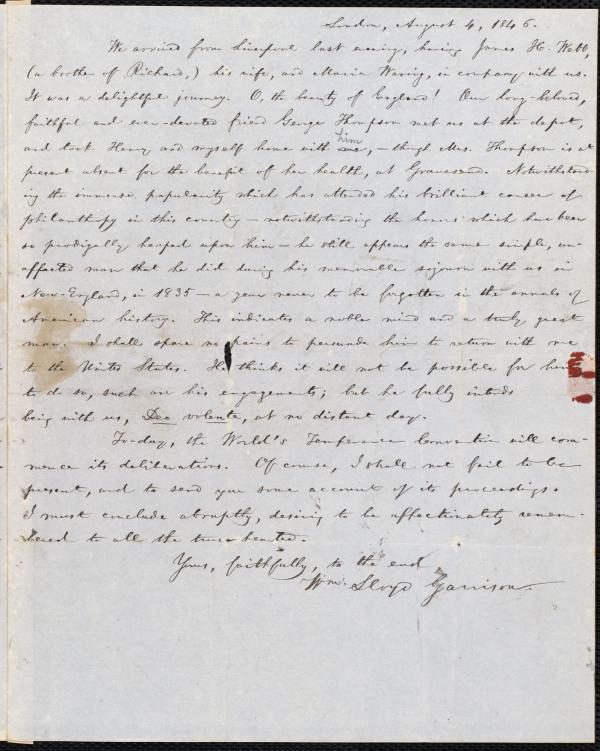 London, August 4, 1846.
We arrived from Liverpool last evening, having James H. Webb,
(a brother of Richard,) his wife, and Maria Waring, in company with us.
It was a delightful journey. O, the beauty of England! Our long-beloved,
faithful and ever-devoted friend George Thompson met us at the depot,
and took Henry and myself home with him, – though Mrs. Thompson is at
present absent for the benefit of her health, at Gravesend. Notwithstand-
ing the immense popularity which has attended his brilliant career of
philanthropy in this country – notwithstanding the honors which have been
so prodigally heaped upon him – he still appears the same simple, un-
affected man that he did during his memorable sojourn with us in
New-England, in 1835 – a year never to be forgotten in the annals of
American history. This indicates a noble mind and a truly great
man. I shall spare no pains to persuade him to return with me
to the United States. He thinks it will not be possible for him
to do so, such are his engagements; but he fully intends
being with us, Deo volente, at no distant day.
To-day, the World's Temperance Convention will com-
mence its deliberations. Of course, I shall not fail to be
present, and to send you some account of its proceedings.
I must conclude abruptly, desiring to be affectionately remem-
bered to all the true-hearted.
Yours, faithfully, to the end
Wm. Lloyd Garrison.